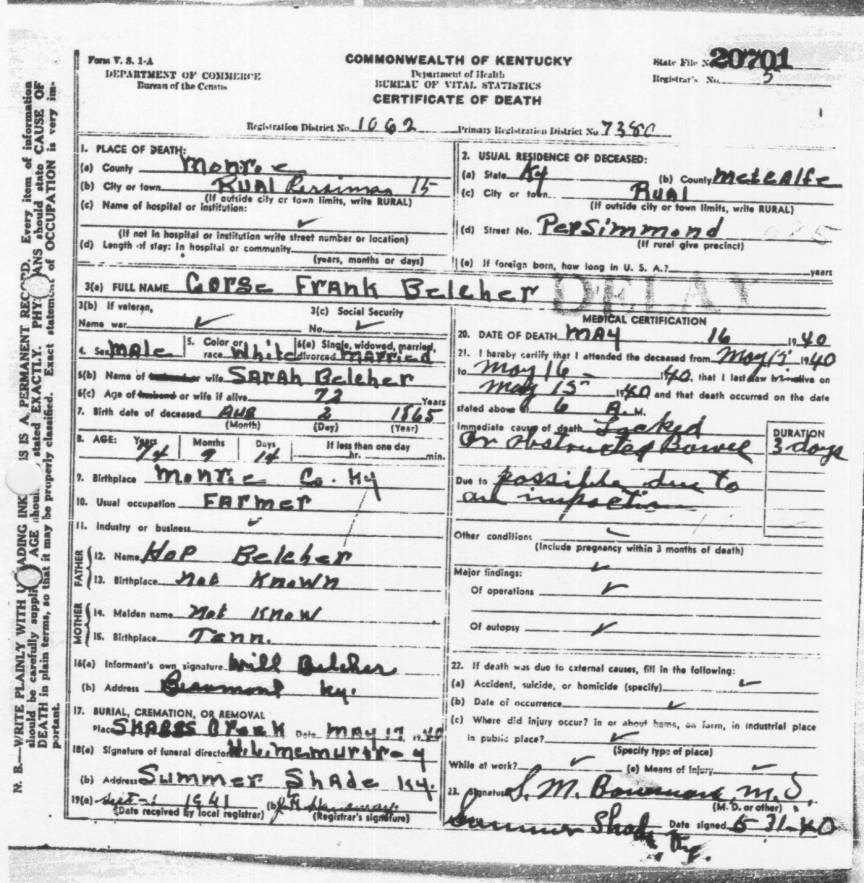 Form V. S. 1-A
DEPARTMENT OF COMMERCE
Bureau of the Census
COMMONWEALTH OF KENTUCKY
Department of Health
BUREAU OF VITAL STATISTICS
CERTIFICATE OF DEATH
State File No. 20701
Registrar's No. 5
Registration District No. 1062 Primary Registration District No. 7380
1. PLACE OF DEATH:
(a) County Monroe
(b) City or town Rual Persimon 15
(If outside city or town limits, write RURAL)
(c) Name of hospital or institution:
(If not in hospital or institution write street number or location)
(d) Length of stay: In hospital or community
(years, months or days)
2. USUAL RESIDENCE OF DECEASED:
(a) State Ky (b) County Metcalfe
(c) City or town Rual
(If outside city or town limits, write RURAL)
(d) Street No. Persimmond
(If rural give precinct)
(e) If foreign born, how long in U. S. A.? years
3(a) FULL NAME Gorse Frank Belcher
DELAY
3(b) If veteran,
Name war
3(c) Social Security
No.
4. Sex Male 5. Color or race White 6(a) Single, widowed, married, divorced Married
6(b) Name of husband or wife Sarah Belcher
6(c) Age of husband or wife if alive 72 Years
7. Birth date of deceased Aug 2 1865
(Month) (Day) (Year)
8. AGE: Years Months Days If less than one day
74 9 14 hr. min.
9. Birthplace Monroe Co. Ky
10. Usual occupation Farmer
11. Industry or business
FATHER
12. Name Hop Belcher
13. Birthplace Not Known
MOTHER
14. Maiden name Not Know
15. Birthplace Tenn.
16(a) Informant's own signature Will Belcher
(b) Address Beaumont Ky.
17. BURIAL, CREMATION, OR REMOVAL
Place Skaggs Creek Date May 17 1940
18(a) Signature of funeral director
(b) Address Summer Shade Ky.
19(a) 1941 (b)
(Date received by local registrar) (Registrar's signature)
MEDICAL CERTIFICATION
20. DATE OF DEATH May 16 1940
21. I hereby certify that I attended the deceased from May 15 1940
to May 16 1940, that I last saw him alive on
May 15 1940 and that death occurred on the date
stated above at 6 A. M.
Immediate cause of death Locked
or obstructed Bowel
DURATION
3 days
Due to possible due to
an impaction
Other conditions
(Include pregnancy within 3 months of death)
Major findings:
Of operations
Of autopsy
22. If death was due to external causes, fill in the following:
(a) Accident, suicide, or homicide (specify)
(b) Date of occurrence
(c) Where did injury occur? in or about home, on farm, in industrial place
in public place?
(Specify type of place)
While at work? (e) Means of injury
23. Signature S. M. M. D.
(M. D. or other)
Summer Shade Ky. Date signed 5-31-40
N. B.—WRITE PLAINLY WITH UNFADING INK THIS IS A PERMANENT RECORD. Every item of information
should be carefully supplied. AGE should be stated EXACTLY. PHYSICIANS should state CAUSE OF
DEATH in plain terms, so that it may be properly classified. Exact statement of OCCUPATION is very im-
portant.